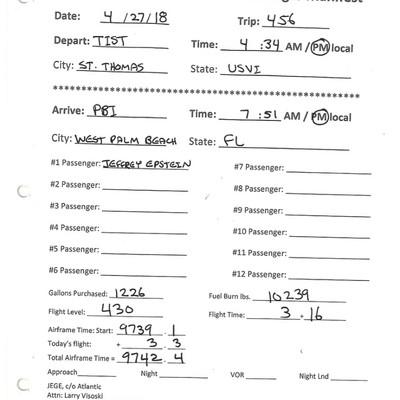 Date: 4 /27/18 Trip: 456
Depart: TIST Time: 4 :34 AM / PM local
City: ST. THOMAS State: USVI
************************************************
Arrive: PBI Time: 7 :51 AM / PM local
City: WEST PALM BEACH State: FL
#1 Passenger: JEFFREY EPSTEIN #7 Passenger:
#2 Passenger: #8 Passenger:
#3 Passenger: #9 Passenger:
#4 Passenger: #10 Passenger:
#5 Passenger: #11 Passenger:
#6 Passenger: #12 Passenger:
Gallons Purchased: 1226 Fuel Burn lbs. 10239
Flight Level: 430 Flight Time: 3 + 16
Airframe Time: Start: 9739 . 1
Today's flight: + 3 . 3
Total Airframe Time = 9742 . 4
Approach Night VOR Night Lnd
JEGE, c/o Atlantic
Attn: Larry Visoski